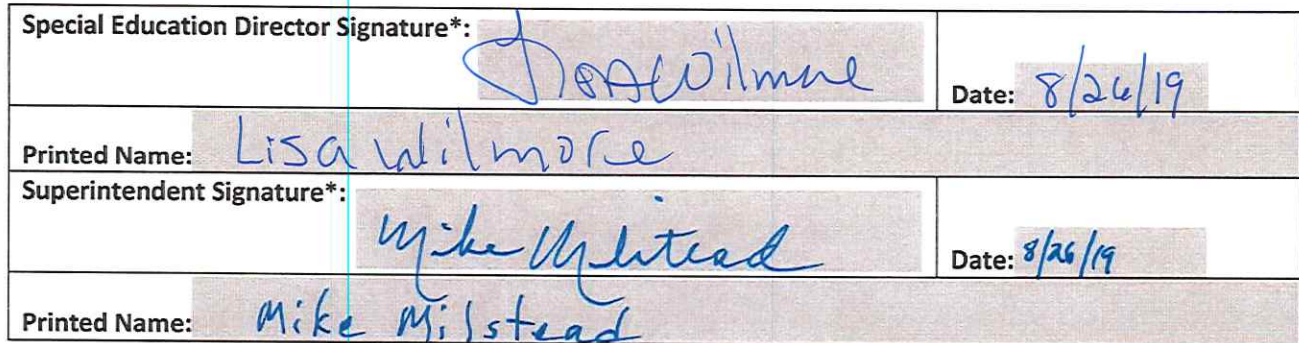 Special Education Director Signature*: Lisa Wilmore
Date: 8/26/19
Printed Name: Lisa Wilmore
Superintendent Signature*: Mike Milstead
Date: 8/26/19
Printed Name: Mike Milstead